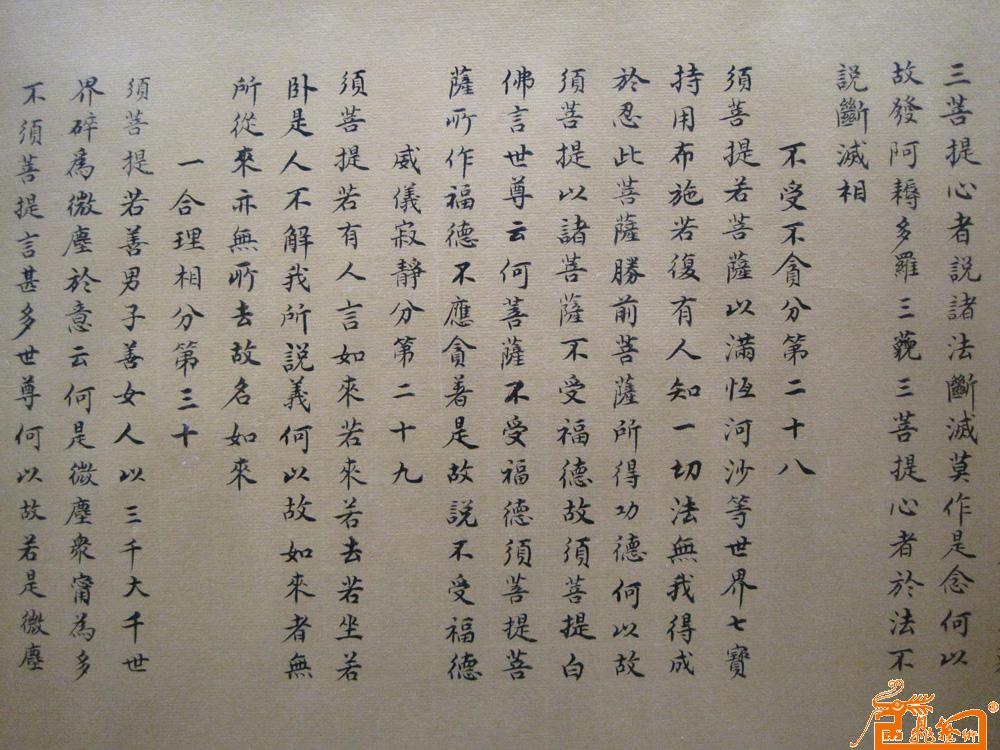 三菩提心者説諸法斷滅莫作是念何以
故發阿耨多羅三藐三菩提心者於法不
説斷滅相
不受不貪分第二十八
須菩提若菩薩以滿恆河沙等世界七寶
持用布施若復有人知一切法無我得成
於忍此菩薩勝前菩薩所得功德何以故
須菩提以諸菩薩不受福德故須菩提白
佛言世尊云何菩薩不受福德須菩提菩
薩所作福德不應貪著是故説不受福德
威儀寂靜分第二十九
須菩提若有人言如來若來若去若坐若
卧是人不解我所説義何以故如來者無
所從來亦無所去故名如來
一合理相分第三十
須菩提若善男子善女人以三千大千世
界碎爲微塵於意云何是微塵衆甯為多
不須菩提言甚多世尊何以故若是微塵